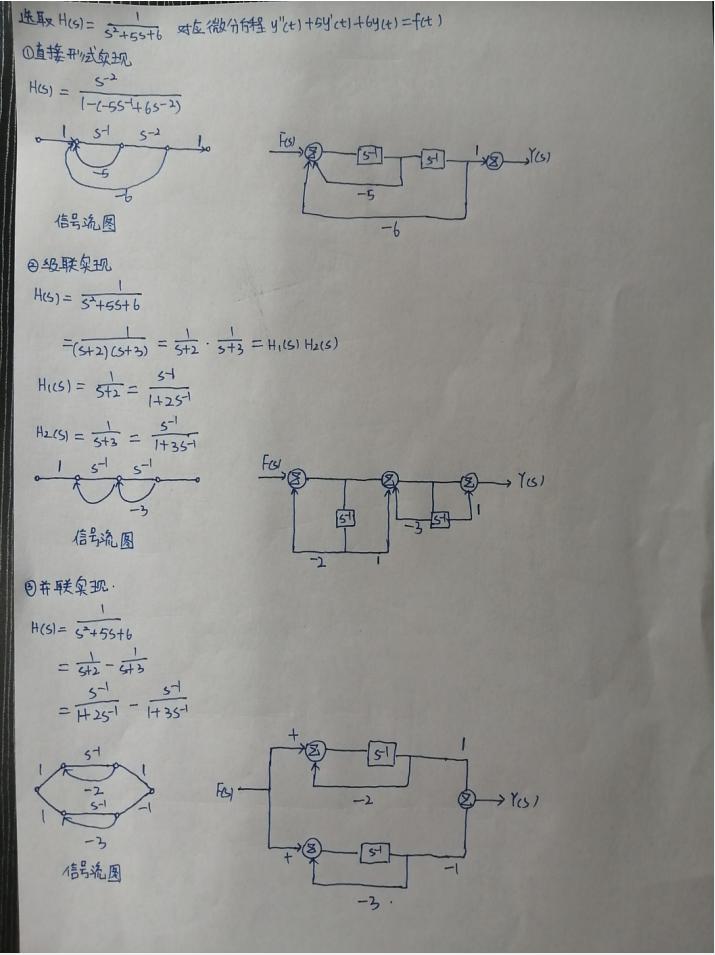 选取 H(s) = 1/(s²+5s+6) 对应微分方程 y''(t)+5y'(t)+6y(t)=f(t)
①直接形式实现
H(s) = s⁻²/(1-(-5s⁻¹+6s-2))
1 s⁻¹ s⁻² 1
-5
-6
信号流图
F(s) Σ s⁻¹ s⁻¹ 1 Σ Y(s)
-5
-6
②级联实现
H(s) = 1/(s²+5s+6)
= 1/((s+2)(s+3)) = 1/(s+2) · 1/(s+3) = H₁(s) H₂(s)
H₁(s) = 1/(s+2) = s⁻¹/(1+2s⁻¹)
H₂(s) = 1/(s+3) = s⁻¹/(1+3s⁻¹)
1 s⁻¹ s⁻¹
-3
信号流图
F(s) Σ Σ Σ Y(s)
s⁻¹ -3 s⁻¹ 1
-2 1
③并联实现.
H(s) = 1/(s²+5s+6)
= 1/(s+2) - 1/(s+3)
= s⁻¹/(1+2s⁻¹) - s⁻¹/(1+3s⁻¹)
s⁻¹
1 -2 1
1 s⁻¹ -1
-3
信号流图
+ Σ s⁻¹ 1
-2
F(s) Σ Y(s)
+ Σ s⁻¹ -1
-3.